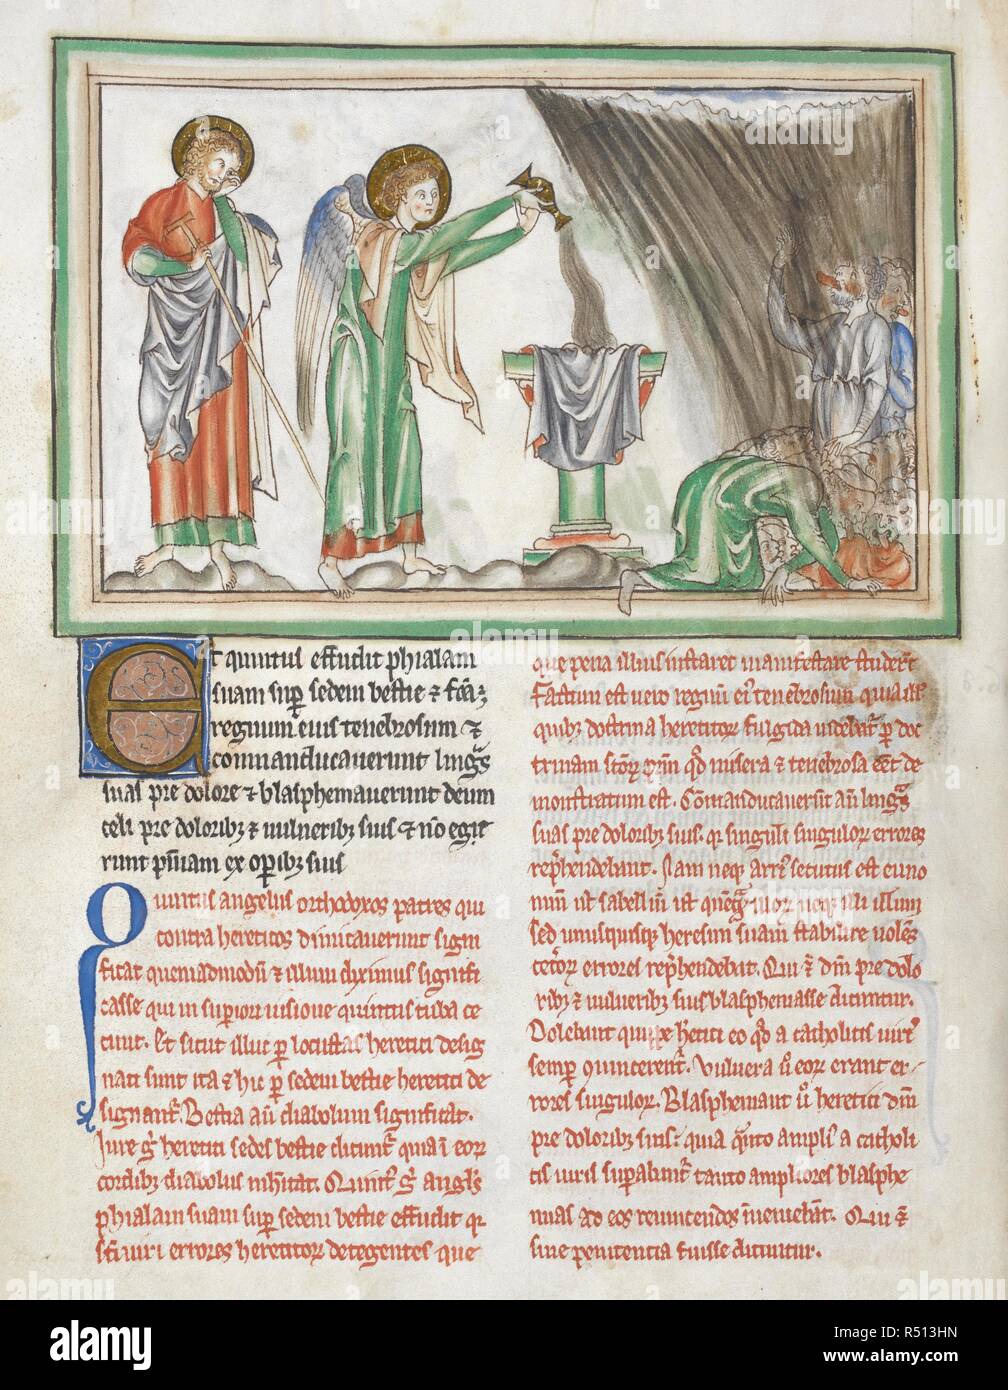 Et quintus effudit phialam
suam sup sedem bestie ⁊ fcm
regnum eius tenebrosum ⁊
conmanducauerunt lingˢ
suas pre dolore ⁊ blasphemauerunt deum
celi pre doloribꝫ ⁊ uulneribꝫ suis ⁊ nō egit
runt pniam ex oꝑibꝫ suis
Quintus angelus orthodoxos patres qui
contra hereticos dimicauerunt signi
ficat quemadmodū ⁊ illum diximus signifi
casse qui in supiori uisione quintus tuba ce
cinit. Et sicut illic ꝑ locustas heretici desig
nati sunt ita ⁊ hic ꝑ sedem bestie heretici de
signantr. Bestia aū diabolum significat.
Iure gͦ heretici sedes bestie dicuntr quia ī eoꝝ
cordibꝫ diabolus inhitat. Quintꝰ gͦ anglˢ
phialam suam sup sedem bestie effudit qꝛ
sci uiri errores hereticoꝝ detegentes que
que pena illius instaret manifestare studerunt
Factum est uero regnū eiꝰ tenebrosum quia illˢ
quibꝫ doctrina hereticoꝝ fulgida uidebatr ꝑ doc
trinam scoꝝ patrum qd misera ⁊ tenebrosa eet de
monstratum est. Conmanducauerūt aū linguas
suas pre doloribꝫ suis. qꝛ singuli singuloꝝ errores
rephendebant. Nam neqꝫ arriꝰ secutus est euno
miū ut sabelliū ut quēqua illoꝝ neqꝫ illi illum
sed unusquisqꝫ heresim suam stabilire uolēs
cetoꝝ errores rephendebat. Qui ⁊ dm̄ pre dolo
ribꝫ ⁊ uulneribꝫ suis blasphemasse dicuntur.
Dolebant quippe hetici eo qd a catholicis uirˢ
semper uincerentr. Vulnera ū eoꝝ erant er-
rores singuloꝝ. Blasphemant ū heretici dm̄
pre doloribꝫ suis: quia quanto ampliꝰ a catholi
cis uiris supabuntr tanto ampliores blasphe
mias ad eos reuincendos īueniebāt. Qui ⁊
sine penitentia fuisse dicuntur.
alamy
Image ID: R513HN
www.alamy.com